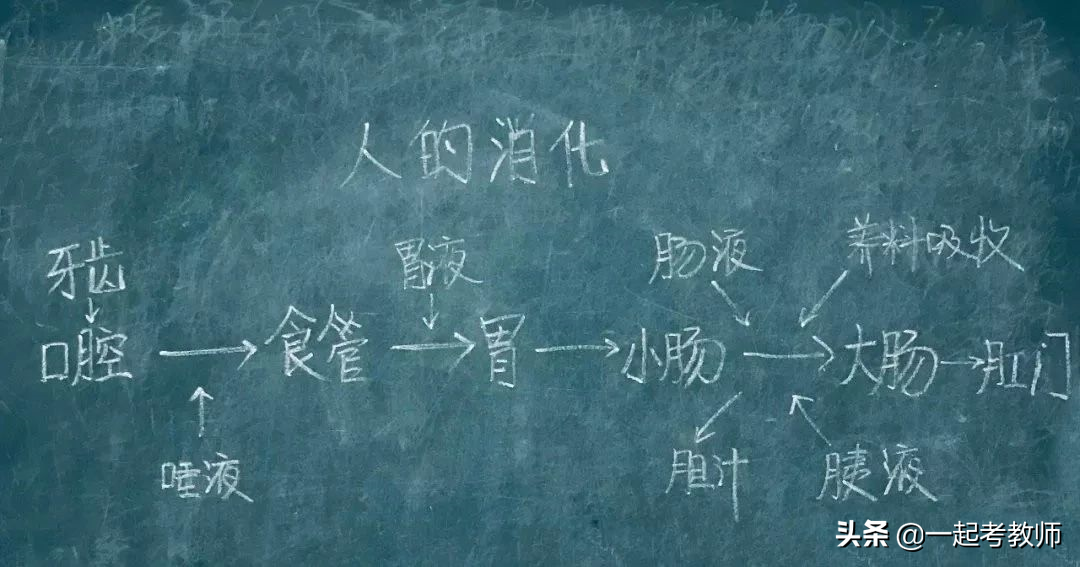 人的消化
牙齿 胃液 肠液 养料吸收
口腔 → 食管 → 胃 → 小肠 → 大肠 → 肛门
唾液 胆汁 胰液
头条 @一起考教师